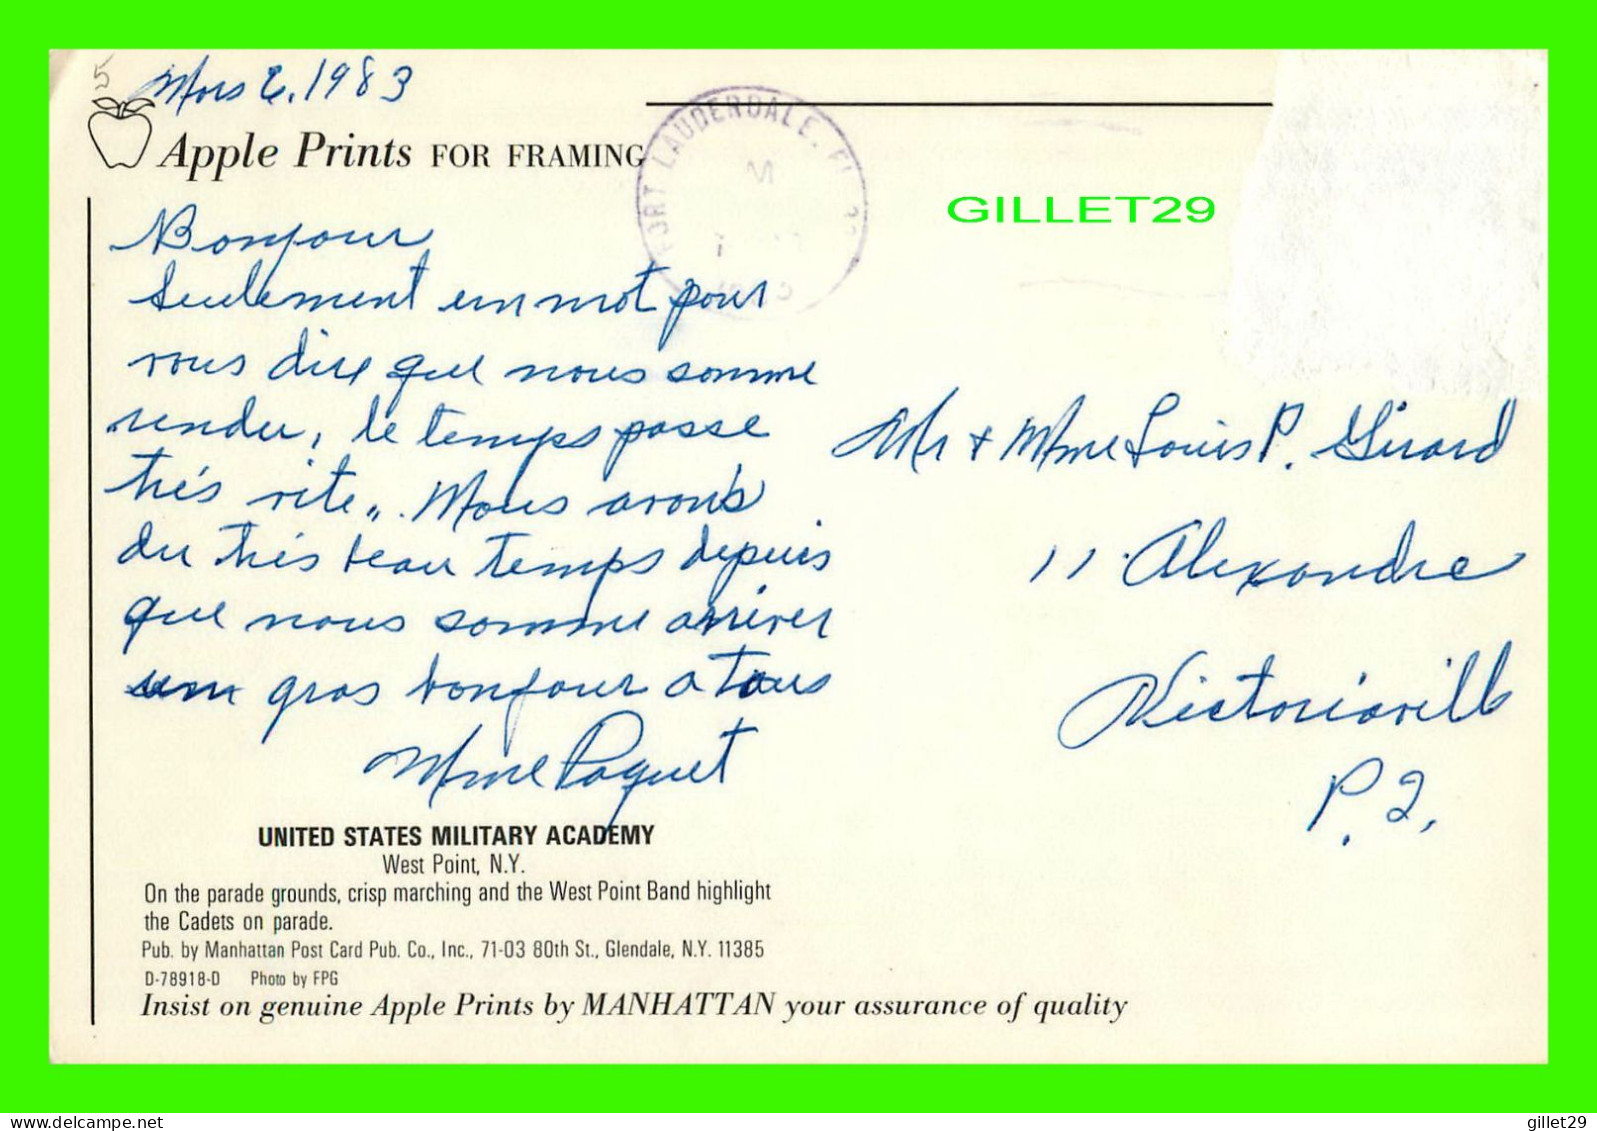 5
Mars 6, 1983
Apple Prints FOR FRAMING
FORT LAUDERDALE, FL
GILLET29
Bonjour
Seulement un mot pour
vous dire que nous somme
rendu, le temps passe
très vite,,. Nous avons
du très beau temps depuis
que nous somme arriver
un gros bonjour a tous
Mme Paquet
Mr + Mme Louis P. Girard
11 Alexandre
Victoriaville
P.Q.
UNITED STATES MILITARY ACADEMY
West Point, N.Y.
On the parade grounds, crisp marching and the West Point Band highlight
the Cadets on parade.
Pub. by Manhattan Post Card Pub. Co., Inc., 71-03 80th St., Glendale, N.Y. 11385
D-78918-D Photo by FPG
Insist on genuine Apple Prints by MANHATTAN your assurance of quality
https://www.delcampe.net
gillet29